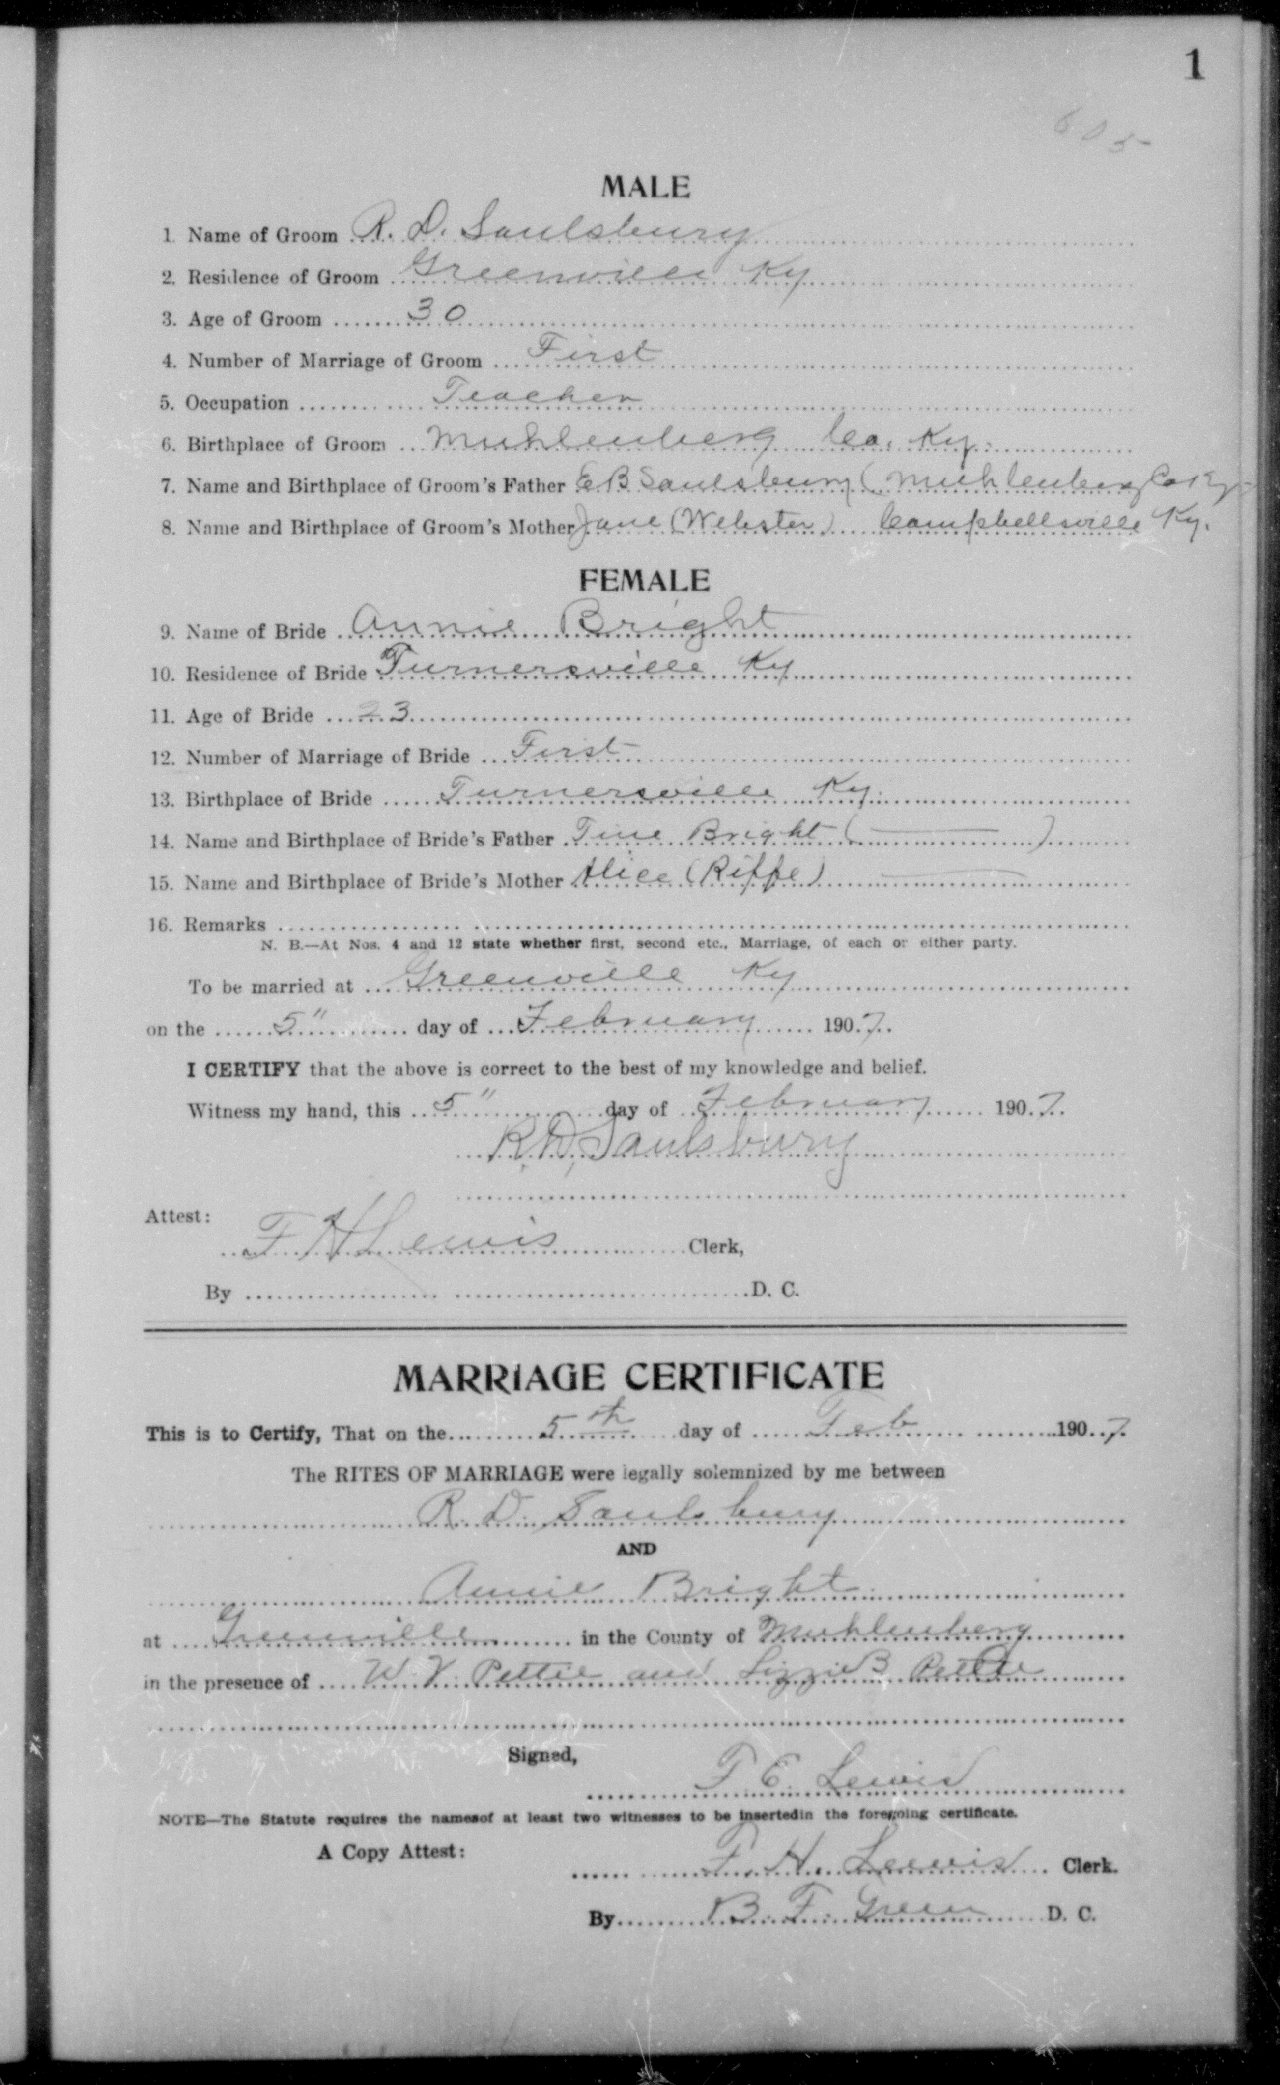 1
605
MALE
1. Name of Groom R. D. Saulsbury
2. Residence of Groom Greenville Ky
3. Age of Groom 30
4. Number of Marriage of Groom First
5. Occupation Teacher
6. Birthplace of Groom Muhlenberg Co. Ky.
7. Name and Birthplace of Groom's Father E B Saulsbury (Muhlenberg Co Ky
8. Name and Birthplace of Groom's Mother Jane (Webster) Campbellsville Ky.
FEMALE
9. Name of Bride Annie Bright
10. Residence of Bride Turnersville Ky
11. Age of Bride 23
12. Number of Marriage of Bride First
13. Birthplace of Bride Turnersville Ky.
14. Name and Birthplace of Bride's Father Tine Bright ( — )
15. Name and Birthplace of Bride's Mother Alice (Riffe) —
16. Remarks
N. B.—At Nos. 4 and 12 state whether first, second etc., Marriage, of each or either party.
To be married at Greenville Ky
on the 5" day of February 1907.
I CERTIFY that the above is correct to the best of my knowledge and belief.
Witness my hand, this 5" day of February 1907.
R. D. Saulsbury
Attest:
F H Lewis Clerk,
By D. C.
MARRIAGE CERTIFICATE
This is to Certify, That on the 5th day of Feb 1907.
The RITES OF MARRIAGE were legally solemnized by me between
R. D. Saulsbury
AND
Annie Bright
at Greenville in the County of Muhlenberg
in the presence of W. V. Pettie and Lizzie B Pettie
Signed,
F. E. Lewis
NOTE—The Statute requires the namesof at least two witnesses to be insertedin the foregoing certificate.
A Copy Attest:
F. H. Lewis Clerk.
By B. F. Green D. C.